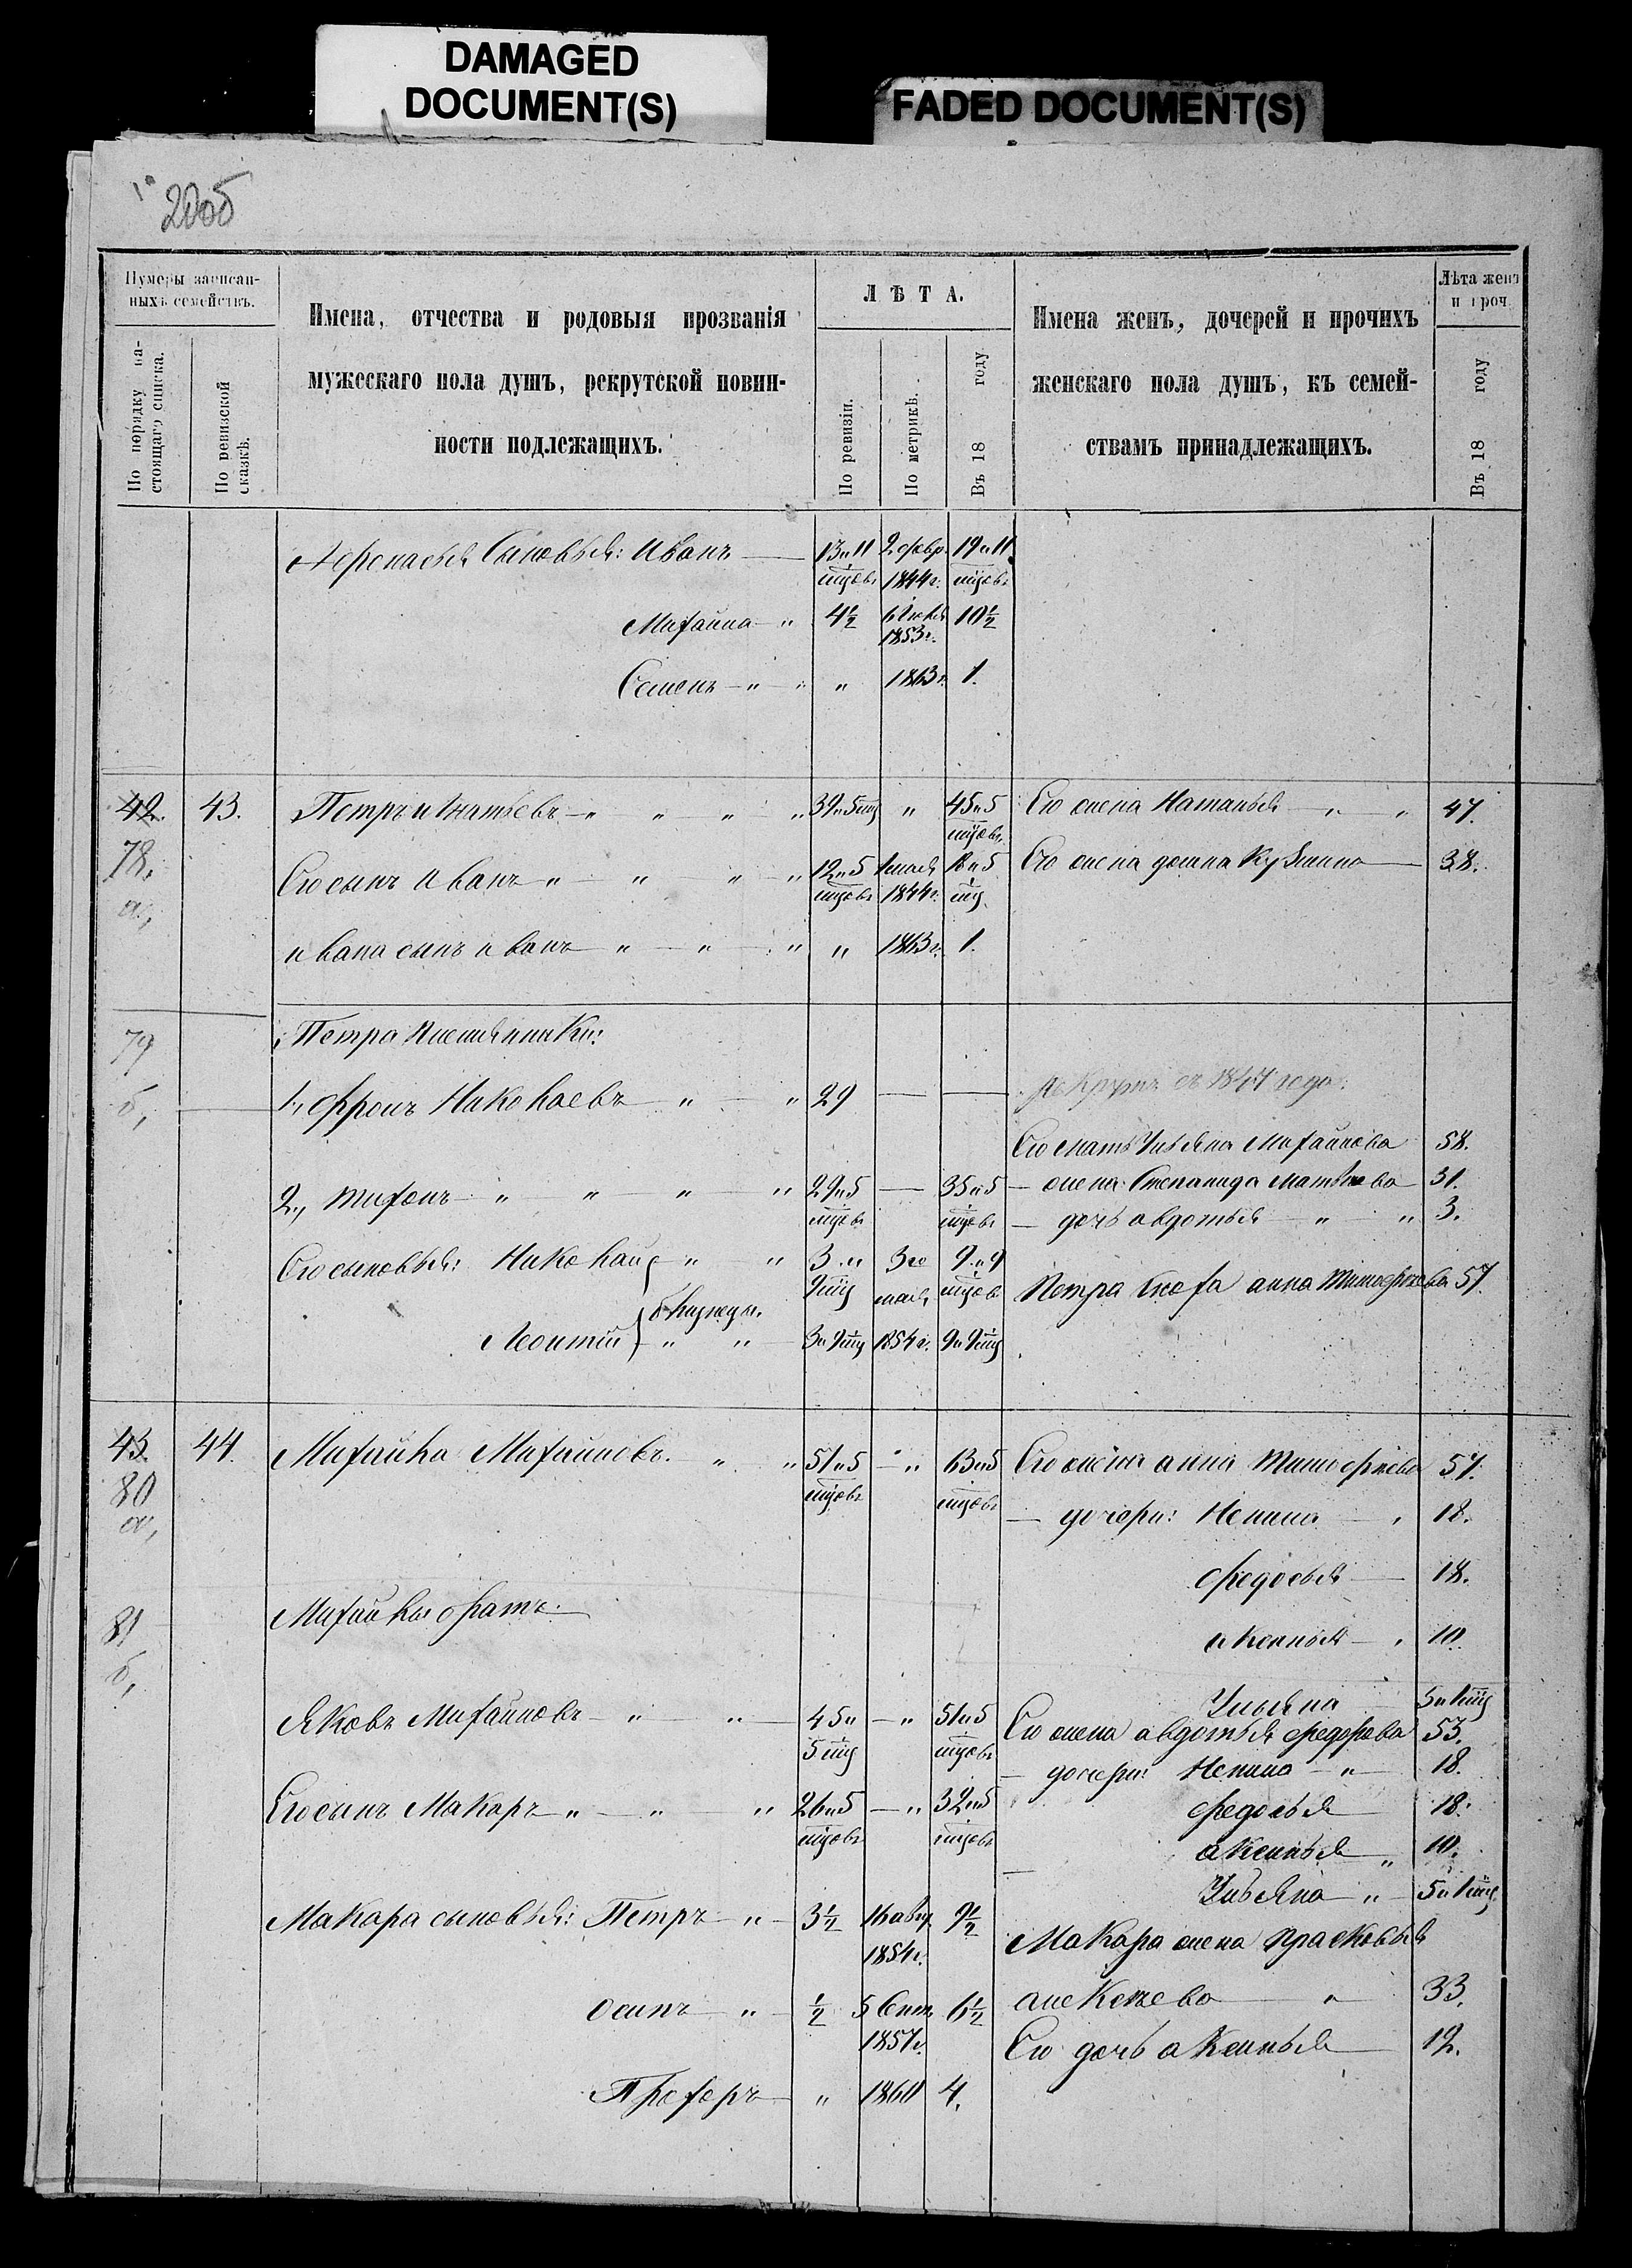 DAMAGED
DOCUMENT(S)
FADED DOCUMENT(S)
Нумеры записан-
ныхъ семействъ.
По порядку на-
стоящаго списка.
По ревизской
сказкѣ.
Имена, отчества и родовыя прозванія
мужескаго пола душъ, рекрутской повин-
ности подлежащихъ.
ЛѢТА.
По ревизіи.
По метрикѣ.
Въ 18 году
Имена женъ, дочерей и прочихъ
женскаго пола душъ, къ семей-
ствамъ принадлежащихъ.
Лѣта женъ
и проч.
Въ 18 году
Сыновья: Иванъ 13 и 11 мцовъ 2 февр. 1844 г. 19 и 11 мцовъ
Михайла " 4½ 1853 г. 10½
Семенъ " " " 1863 г. 1.
42. 43. Петръ Игнатьевъ " " " " 39 и 5 мц " 45 и 5 мцовъ Его жена Наталья " " 47.
78. а, Его сынъ Иванъ " " " " 12 и 5 мцовъ 1 мая 1844 г. 18 и 5 мц. Его жена Домна Кузмина 38.
Ивана сынъ Иванъ " " " " 1863 г. 1.
79 б, Петра племянники:
1, Николаевъ " " 29 — — Рекрутъ съ 1847 года.
Его мать Ульяна Михайлова 58.
2, Тихонъ " " " " 29 и 5 мцовъ — 35 и 5 мцовъ — жена Степанида Матвѣева 31.
— дочь Авдотья " " 3.
Его сыновья: Николай " " 3 и 9 мц 3го мая 9 и 9 мцовъ
близнецы.
Петра сноха Анна Тимофеева 57.
Леонтій " " 3 и 9 мц 1854 г. 9 и 9 мц
43. 44. Михайла Михайловъ. " " 51 и 5 мцовъ " 63 и 5 мцовъ Его жена Анна Тимофеева 57.
80 а,
— дочери: Ненила 18.
Федосья 18.
81 б, Михайлы братъ:
Аксинья 10.
Ульяна 5 и 1 мц
Яковъ Михайловъ " " 45 и 5 мц " 51 и 5 мцовъ Его жена Авдотья Федорова 53.
— дочери: Ненила " 18.
Его сынъ Макаръ " " " 26 и 5 мцовъ " 32 и 5 мцовъ Федосья 18.
Аксинья " 10.
Ульяна " 5 и 1 мц
Макара сыновья: Петръ " 3½ 1854 г. 9½
Макара жена Прасковья
Алексѣева " 33.
Осипъ " ½ 5 Сент. 1857 г. 6½
Его дочь Аксинья 12.
Прохоръ " 1860 4.